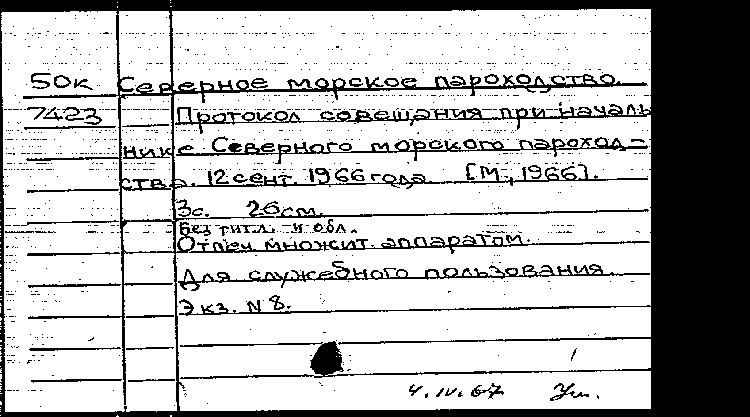 50к Северное морское пароходство.
7423 Протокол совещания при началь
нике Северного морского пароход-
ства. 12 сент. 1966 года [М., 1966].
3с. 26см.
Без титл. и обл.
Отпеч множит. аппаратом.
Для служебного пользования.
Экз. N 8.
4.IV.67